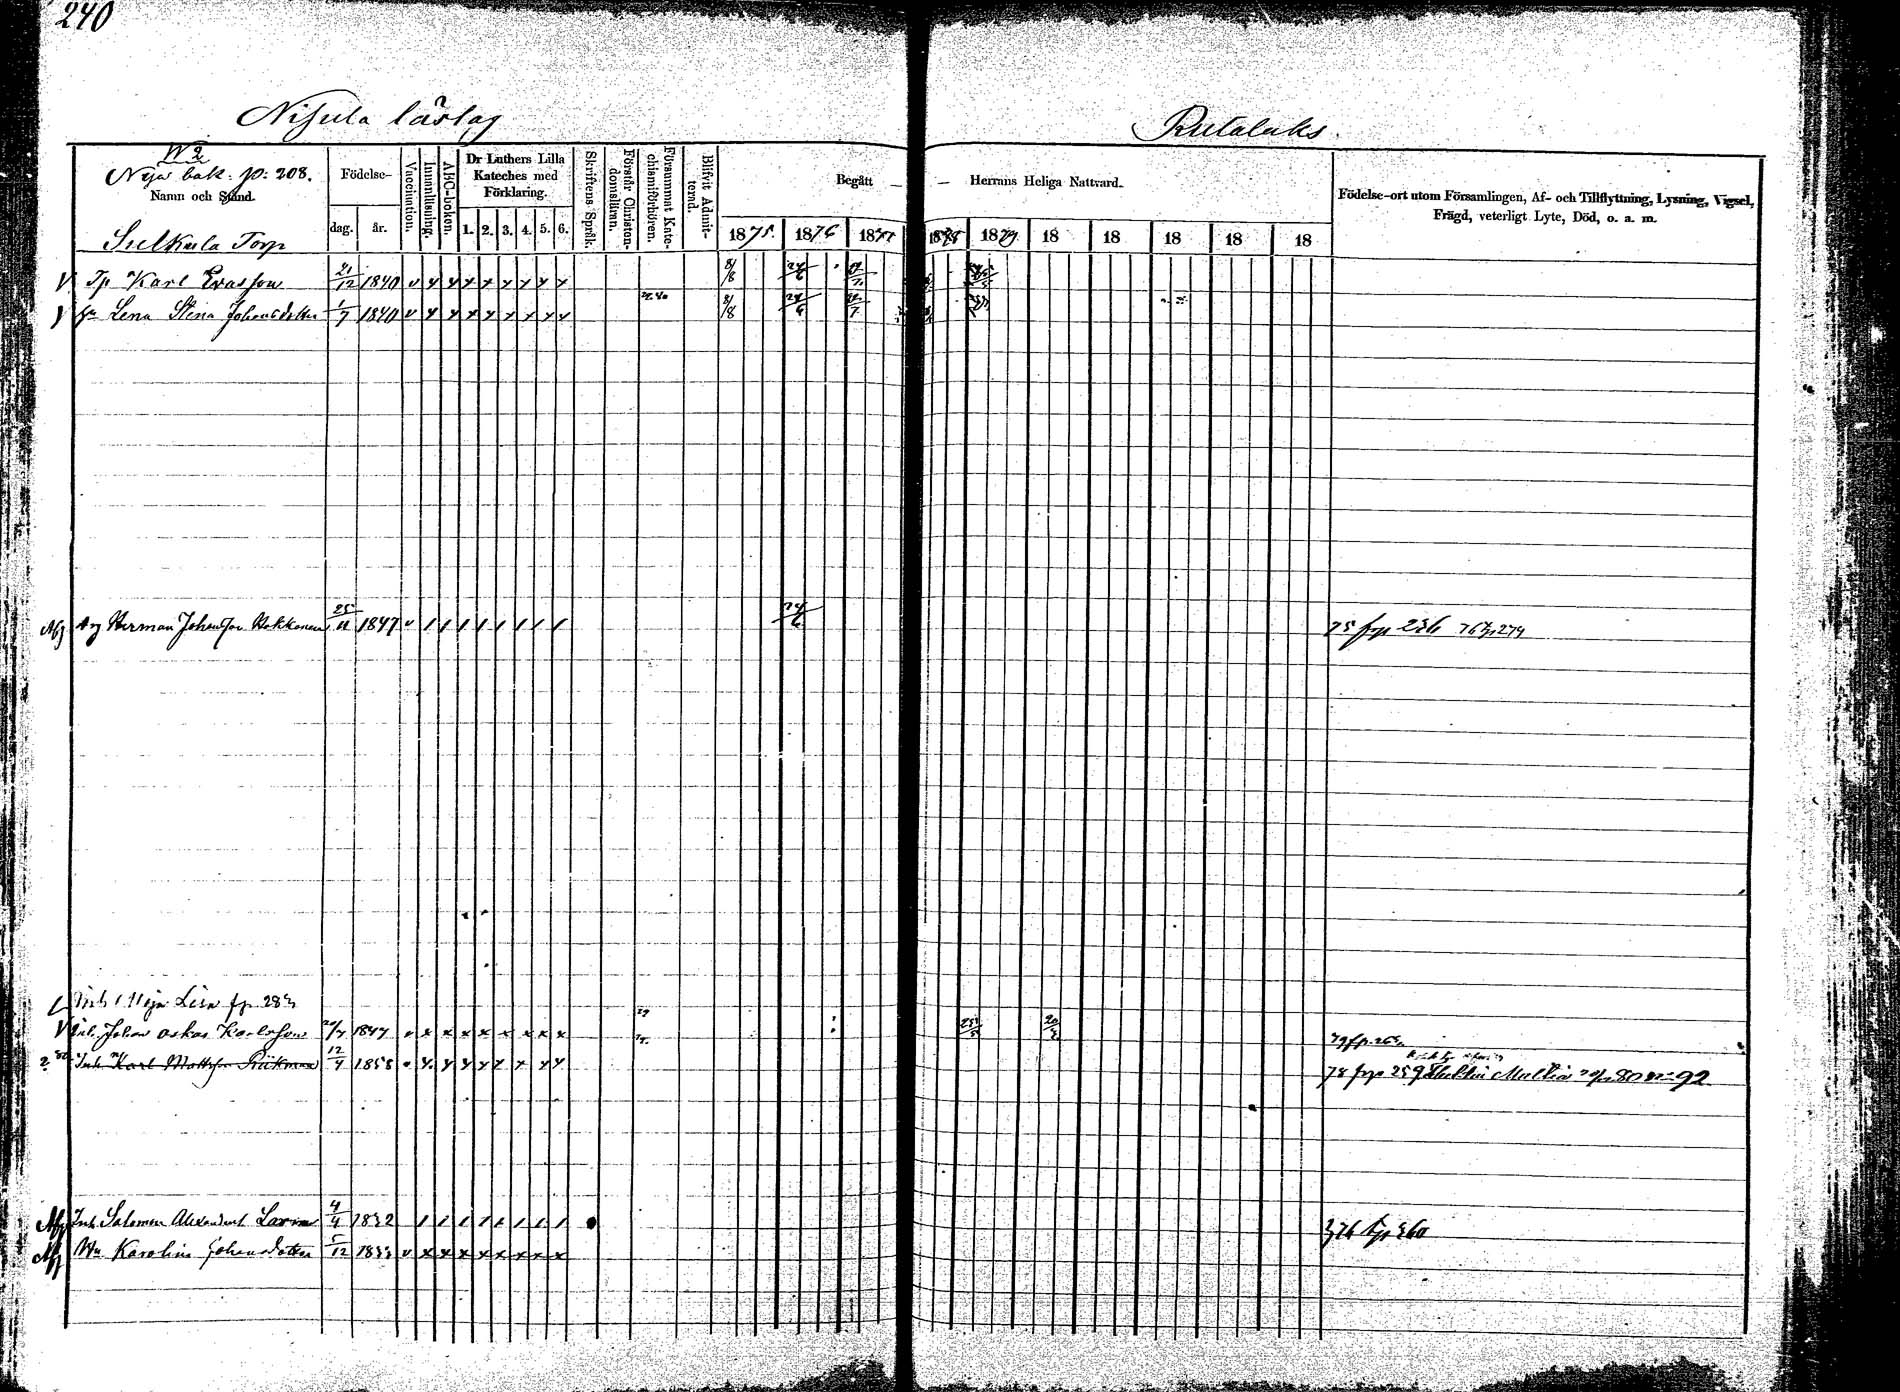 240
Nisula läslag
Rutaluks.
N 2
Nya bok: p: 208.
Namn och Stånd.
Födelse-
dag. år.
Vaccination.
Innanläsning.
ABC-boken.
Dr Luthers Lilla Kateches med Förklaring.
1. 2. 3. 4. 5. 6.
Skriftens Språk.
Förstår Christendomsläran.
Försummat Katechismiförhören.
Blifvit Admitterad.
Begått — — Herrans Heliga Nattvard.
1875. 1876 1877 1878 1879 18 18 18 18 18
Födelse-ort utom Församlingen, Af- och Tillflyttning, Lysning, Vigsel, Frägd, veterligt Lyte, Död, o. a. m.
Sulkula Torp
V Tp Karl Ersson 21/12 1840 v 8/8 24/6
hu Lena Stina Johansdotter 1/7 1840 v 8/8 24/6
Afg Herman Johansson 25/11 1847 v 24/6 75 frp 236 76 tp 274
Lisa fp 283
V Inh. Johan Oskar Karlsson 20/4 1847 v x x x x x x x x 79 fp. 265.
Inh Karl Mattsson 12/4 1858 78 frp 259 Multia 80 92
Afg Inh Salomon Alexander 4/4 1832 76 tp 360
Afg Hu Karolina Johansdotter 5/12 1833 v x x x x x x x x